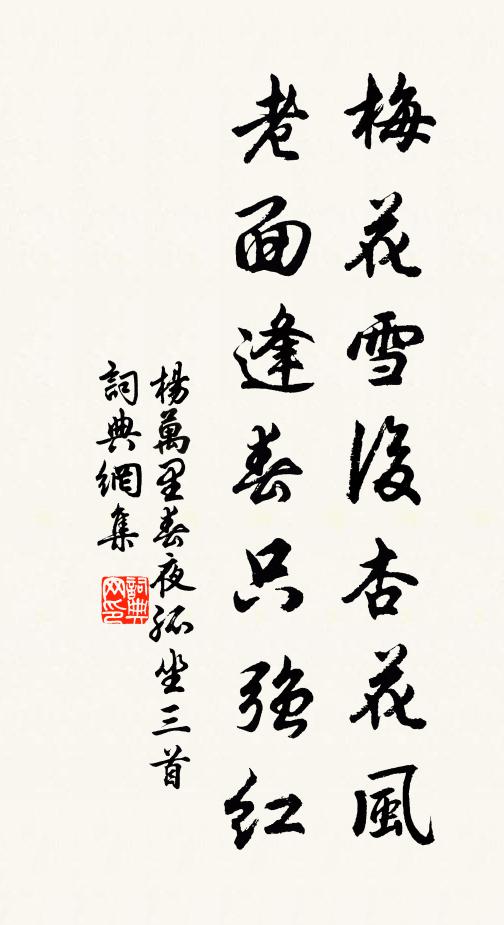 梅花雪後杏花風
老面逢春只強紅
楊萬里春夜孤坐三首
詞典網集
詞典網印